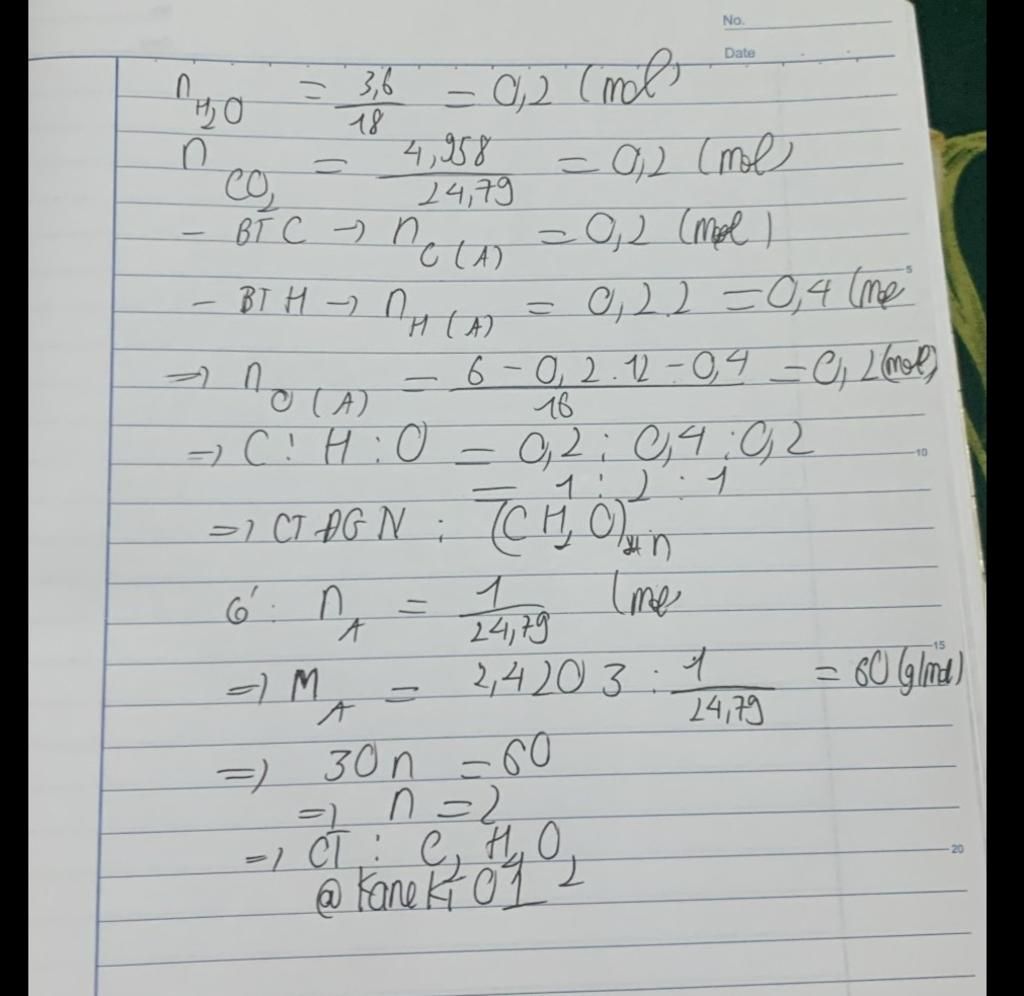 No.
Date
n H₂O = 3,6/18 = 0,2 (mol)
n CO₂ = 4,958/24,79 = 0,2 (mol)
- BT C → n C(A) = 0,2 (mol)
5
- BT H → n H(A) = 0,2.2 = 0,4 (mo
⇒ n O(A) = (6 - 0,2.12 - 0,4)/16 = 0,2 (mol)
⇒ C : H : O = 0,2 : 0,4 : 0,2
10
= 1 : 2 : 1
⇒ CTĐGN : (CH₂O)n
Có : n A = 1/24,79 (mo
15
⇒ M A = 2,4203 : 1/24,79 = 60 (g/mol)
⇒ 30n = 60
⇒ n = 2
⇒ CT : C₂H₄O₂
20
@Kaneki01